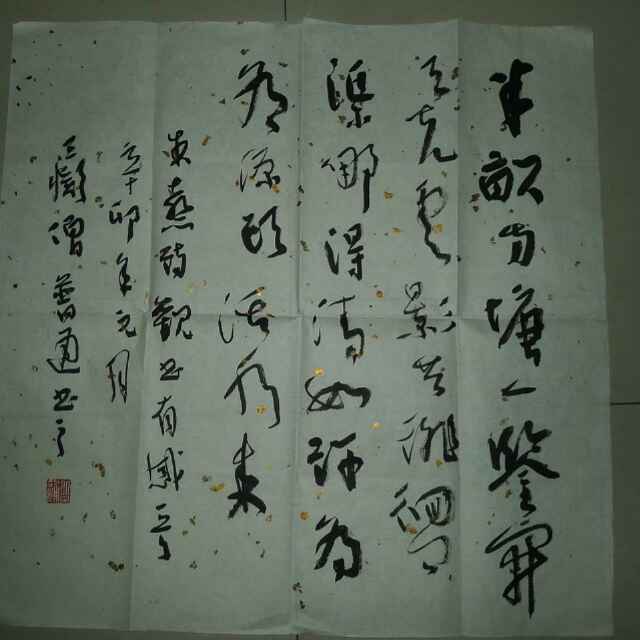 半畝方塘一鑒開
天光雲影共徘徊問
渠那得清如許為
有源頭活水來
朱熹詩觀書有感
辛卯年元月
僧普通書